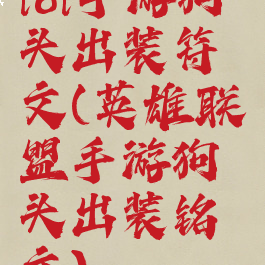 lol手游狗
头出装符
文(英雄联
盟手游狗
头出装铭
文)